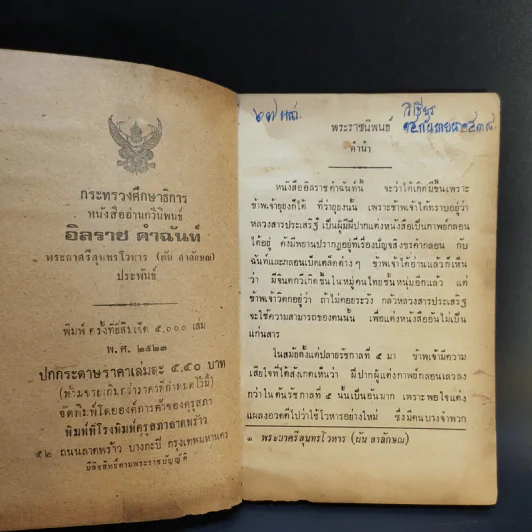 กระทรวงศึกษาธิการ
หนังสืออ่านกวีนิพนธ์
อิลราช คำฉันท์
พระยาศรีสุนทรโวหาร (ผัน สาลักษณ)
ประพันธ์
พิมพ์ ครั้งที่ยี่สิบเจ็ด ๕,๐๐๐ เล่ม
พ.ศ. ๒๕๒๓
ปกกระดาษราคาเล่มละ ๕.๔๐ บาท
(ห้ามขายเกินกว่าราคาที่กำหนดไว้นี้)
จัดพิมพ์โดยองค์การค้าของคุรุสภา
พิมพ์ที่โรงพิมพ์คุรุสภาลาดพร้าว
๔๒ ถนนลาดพร้าว บางกะปิ กรุงเทพมหานคร
มีลิขสิทธิ์ตามพระราชบัญญัติ
พระราชนิพนธ์
คำนำ
หนังสืออิลราชคำฉันท์นี้ จะว่าได้เกิดมีขึ้นเพราะ
ข้าพเจ้ายุยงก็ได้ ที่ว่ายุยงนั้น เพราะข้าพเจ้าได้ทราบอยู่ว่า
หลวงสารประเสริฐ เป็นผู้มีฝีปากแต่งหนังสือเป็นกาพย์กลอน
ได้อยู่ ดังมีพยานปรากฏอยู่ที่เรื่องปัญจสิงขรคำกลอน กับ
ฉันท์และกลอนเบ็ดเตล็ดต่างๆ ข้าพเจ้าได้อ่านแล้วก็เห็น
ว่า มีจินตกวีเกิดขึ้นในหมู่คนไทยชั้นหนุ่มอีกแล้ว แต่
ข้าพเจ้าวิตกอยู่ว่า ถ้าไม่คอยระวัง กลัวหลวงสารประเสริฐ
จะใช้ความสามารถของตนนั้น เพื่อแต่งหนังสืออันไม่เป็น
แก่นสาร
ในสมัยตั้งแต่ปลายรัชกาลที่ ๕ มา ข้าพเจ้ามีความ
เสียใจที่ได้สังเกตเห็นว่า ฝีปากผู้แต่งกาพย์กลอนเลวลง
กว่าในต้นรัชกาลที่ ๕ นั้นเป็นอันมาก เพราะพอใจแต่ง
แผลงอวดดีไปว่าใช้โวหารอย่างใหม่ ซึ่งมีคนบางจำพวก
๑ พระยาศรีสุนทรโวหาร (ผัน สาลักษณ)